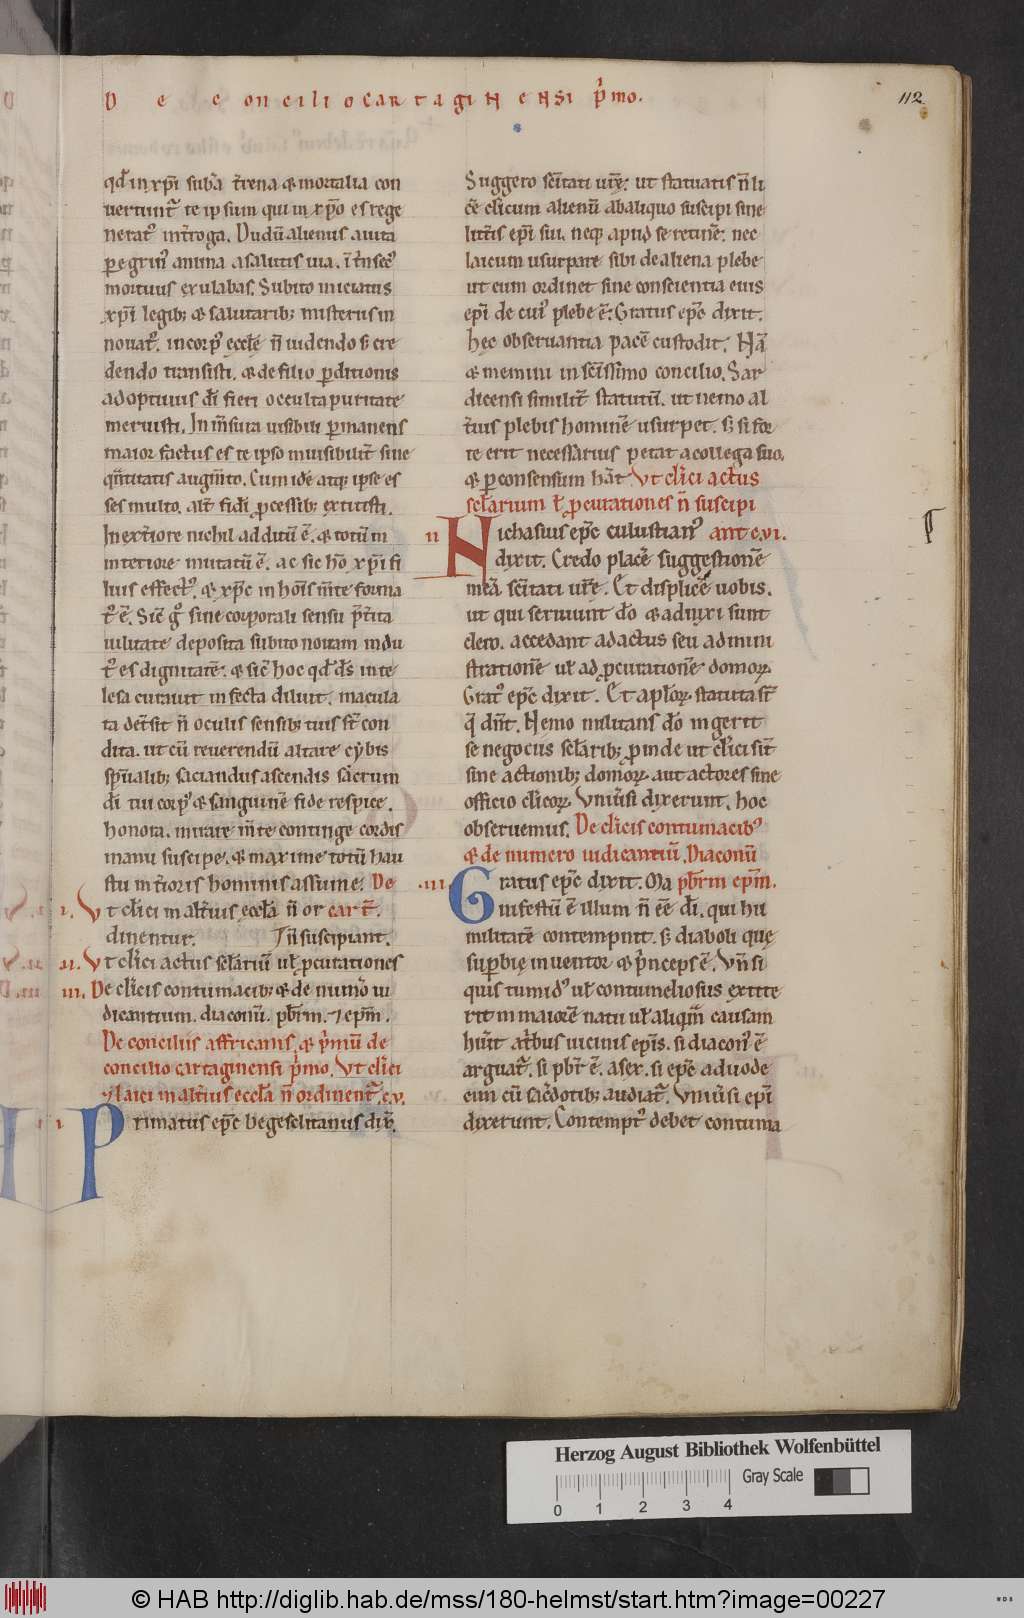 De concilio cartaginensi p̄mo.
112.
qd̄ in xp̄i subᷓa t̄rena & mortalia con
uertunt᷑ te ipsum qui in xp̄o es rege
nerat᷒ int̄roga. Dudū alienus a uita
ꝑegrin᷒ a mīna a salutis uia. īt̄nsec᷒
mortuus exulabas. Subito iniciatus
xp̄i legib; & salutarib; misteriis in
nouat᷒. in corp᷒ ecclę n̄ uidendo s; cre
dendo transisti. & de filio ꝑditionis
adoptiuus dī fieri occulta puritate
meruisti. In m̄sura uisibili ꝑmanens
maior factus es te ipso inuisibilit̄ sine
qn̄titatis augm̄to. Cum idē atq; ipse es
ses multo alt̄ fidī ꝓcessib; extitisti.
In ext̄iore nichil additū ē. & totū in
interiore mutatū ē. ac sic hō xp̄i fi
lius effect᷒. & xp̄c in hoīs m̄te forma
t᷒ ē. Sic̄ g̊ sine corporali sensu p̄t̄ita
uilitate deposita subito nouam indu
t᷒ es dignitatē. & sic̄ hoc qd̄ d̄s in te
lesa curauit infecta diluit. macula
ta det̄sit n̄ oculis sensib; tuis st̄ con
dita. ut cū reuerendū altare cybis
sp̄ualib; saciandus ascendis sac̄rum
dī tui corp᷒ & sanguinem fide respice.
honora. mirare m̄te continge cordis
manu suscipe. & maxime totū hau
stu int̄ioris hominis assume. De
.i. Vt clici in alt̄ius eccl̄a n̄ or cart̄.
dinentur. Vl̄ n̄ suscipiant.
.ii. Vt clici actus sel̄ariū ul̄ ꝓcurationes
.iii. De clīcis contumacib; & de num̄o iu
dicantium. diaconū. pbr̄m. ⁊ epm̄.
De conciliis affricanis. & p̄mū de
concilio cartaginensi p̄mo. Vt clici
ul̄ laici in alt̄ius eccl̄a n̄ ordinent᷑. c. v.
.i. Primatus ep̄c begeselitanus dix̄.
Suggero sc̄itati ur̄ę: ut statuatis n̄ li
cē clīcum alienū ab aliquo suscipi sine
litt̄is ep̄i sui. neq; apud se retinē: nec
laicum usurpare sibi de aliena plebe
ut eum ordinet sine conscientia eius
ep̄i de cui᷒ plebe ē: Gratus ep̄c dixit.
Hęc obseruantia pacē custodit. Nā
& memini in sc̄issimo concilio Sar
dicensi similit̄ statutū. ut nemo al
t̄ius plebis hominē usurpet. s; si for
te erit necessarius petat a collega suo.
& ꝑ consensum hāt Vt clīci actus
sel̄arium ul̄ ꝓcurationes n̄ suscipi
ii Nichasius ep̄c culusitan᷒ ant c. vi.
dixit. Credo placē suggestionē
meā sc̄itati ur̄ę. Et displicē uobis.
ut qui seruiunt do & adnixi sunt
clero. accedant ad actus seu admini
strationē ul̄ ad ꝓcurationē domoꝝ.
Grat᷒ ep̄c dixit. Et apl̄oꝝ statuta st̄
q̄ dn̄t. Nemo militans do ingerit
se negociis sel̄arib; ꝓinde ut clīci sit̄
sine actionib; domoꝝ aut actores sine
officio clīcoꝝ. Vniūsi dixerunt. hoc
obseruemus. De clīcis contumacib᷒
& de numero iudicantiū. Diaconū
.iii. Gratus ep̄c dixit. Ma pbr̄m epm̄.
nifestū ē illum n̄ eē dī. qui hu
militatē contempnit. s; diaboli quę
suꝑbię inuentor & p̄nceps ē. Vn̄ si
quis tumid᷒ ul̄ contumeliosus extite
rit in maiorē natu ul̄ aliqm̄ causam
hūit at̄bus uicinis ep̄is. si diacon᷒ ē
arguat᷑. si pbr̄ ē. a sex. si ep̄c a duode
cim cū sac̄dotib; audiat᷑. Vniūsi ep̄i
dixerunt. Contempt᷒ debet contuma
Herzog August Bibliothek Wolfenbüttel
Gray Scale
0 1 2 3 4
© HAB http://diglib.hab.de/mss/180-helmst/start.htm?image=00227